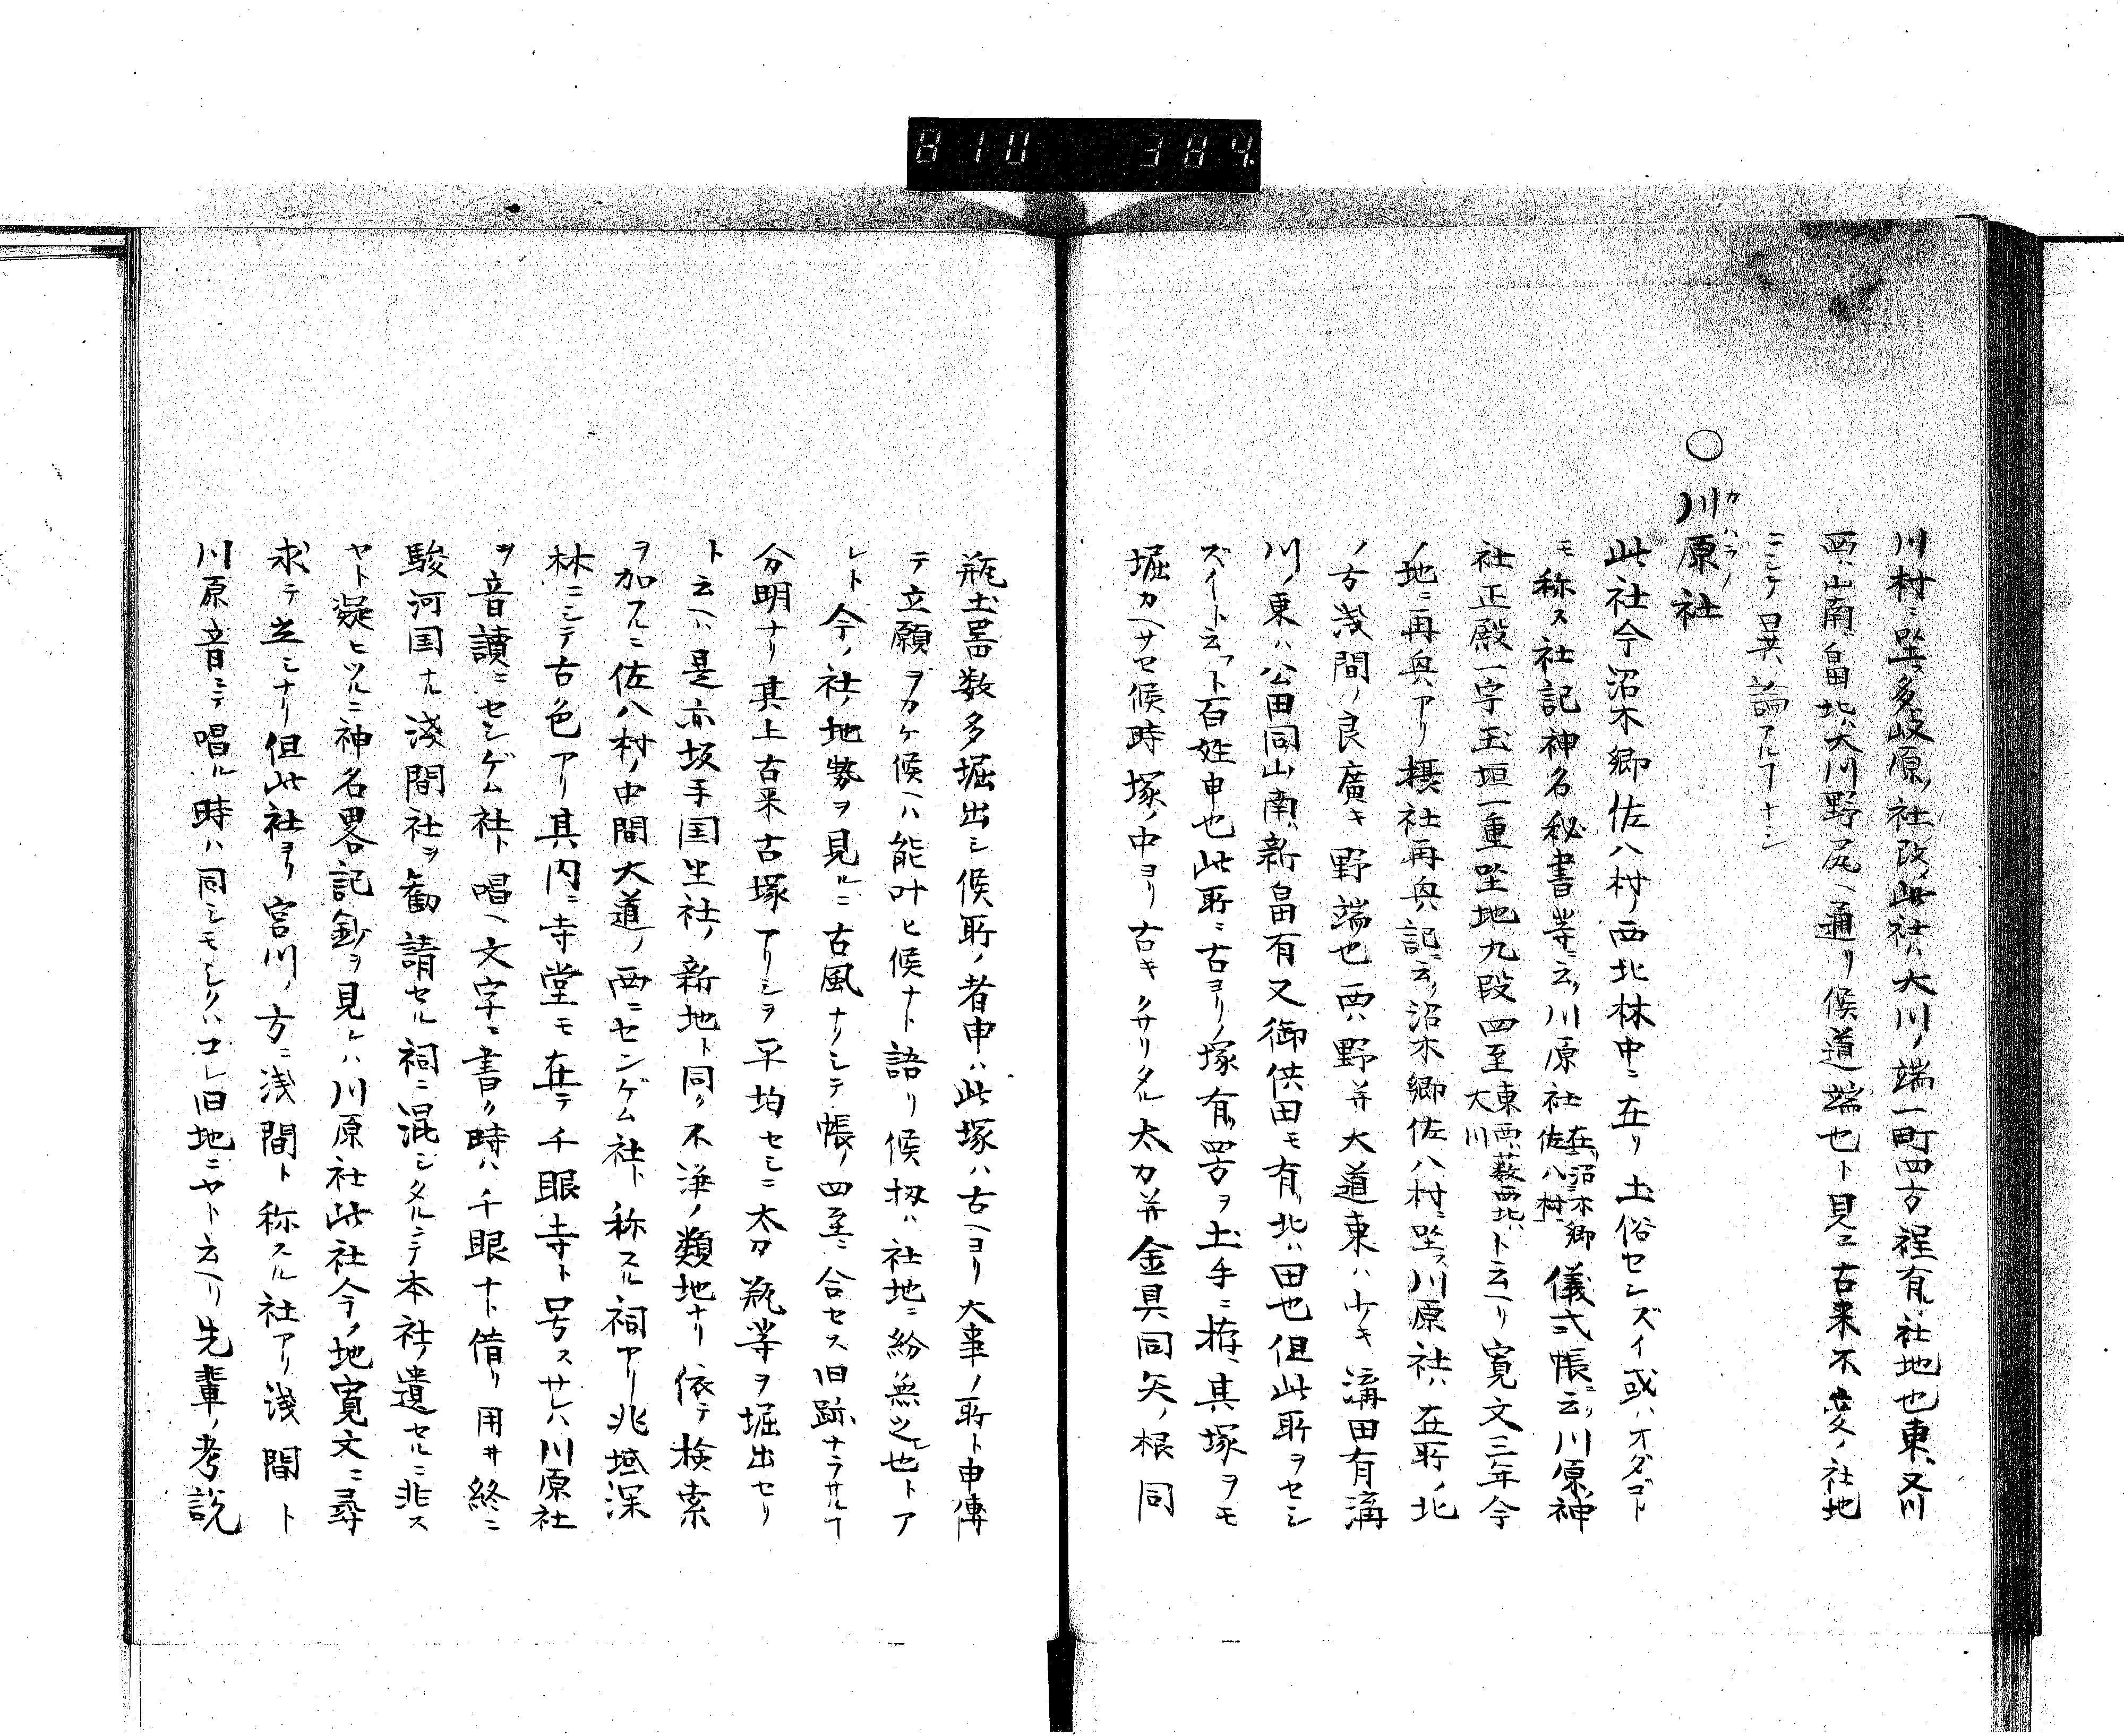 810 384
川村ニ坐ス多岐原ノ社改ノ此社ハ大川ノ端一町四方程有ル社地也東ハ又川
西ハ山南ハ畠北ハ大川野尻ヘ通リ候道端也ト見エ古来不変ノ社地
ニシテ異論アルフナシ
○川原社
カハラノ
此社今沼木郷佐八村ノ西北林中ニ在リ土俗センズイ或ハオダゴト
モ称ス社記神名秘書等ニ云ク川原社在沼木郷佐八村儀式帳ニ云ク川原神
社正殿一宇玉垣一重坐地九段四至東西ハ薮西北ハ大川ト云ヘリ寛文三年今
ノ地ニ再興アリ摂社再興記ニ云ク沼木郷佐八村ニ坐ス川原社ハ在所ノ北
ノ方浅間ノ艮廣キ野端也西ハ野并大道東ハ少キ溝田有溝
川ノ東ハ公田同山南ハ新畠有又御供田モ有リ北ハ田也但此所ヲセシ
ズイト云フト百姓申也此所ニ古ヨリノ塚有リ四方ヲ土手ニ其塚ヲモ
堀カヘサセ候時塚ノ中ヨリ古キクサリタル太刀并金具同矢ノ根同
瓶土器数多堀出シ候所ノ者申ハ此塚ハ古ヘヨリ大事ノ所ト申傳
テ立願ヲカケ候ヘハ能叶ヒ候ナト語リ候扨ハ社地ニ紛無之也トア
レト今ノ社ノ地勢ヲ見ルニ古風ナリシテ帳ノ四至ニ合セス旧跡ナラサルフ
分明ナリ其上古来古塚アリシヲ平均セシニ太刀瓶等ヲ堀出セリ
ト云ヘハ是亦坂手国生社ノ新地ト同ク不浄ノ類地ナリ依テ検索
ヲ加フルニ佐八村ノ中間大道ノ西ニセンゲム社ト称スル祠アリ兆域深
林ニシテ古色アリ其内ニ寺堂モ在テ千眼寺ト号スサレハ川原社
ヲ音讀ニセンゲム社ト唱ヘ文字ニ書ク時ハ千眼ナト借リ用井終ニ
駿河国ナル淺間社ヲ勧請セル祠ニ混シタルニテ本社ノ遺セルニ非ス
ヤト凝ヒツルニ神名畧記鈔ヲ見レハ川原社此社今ノ地寛文ニ尋
求テ立シナリ但此社ヨリ宮川ノ方ニ浅間ト称スル社アリ淺間ト
川原音ニテ唱ル時ハ同シモシクハコレ旧地ニヤト云ヘリ先輩ノ考説